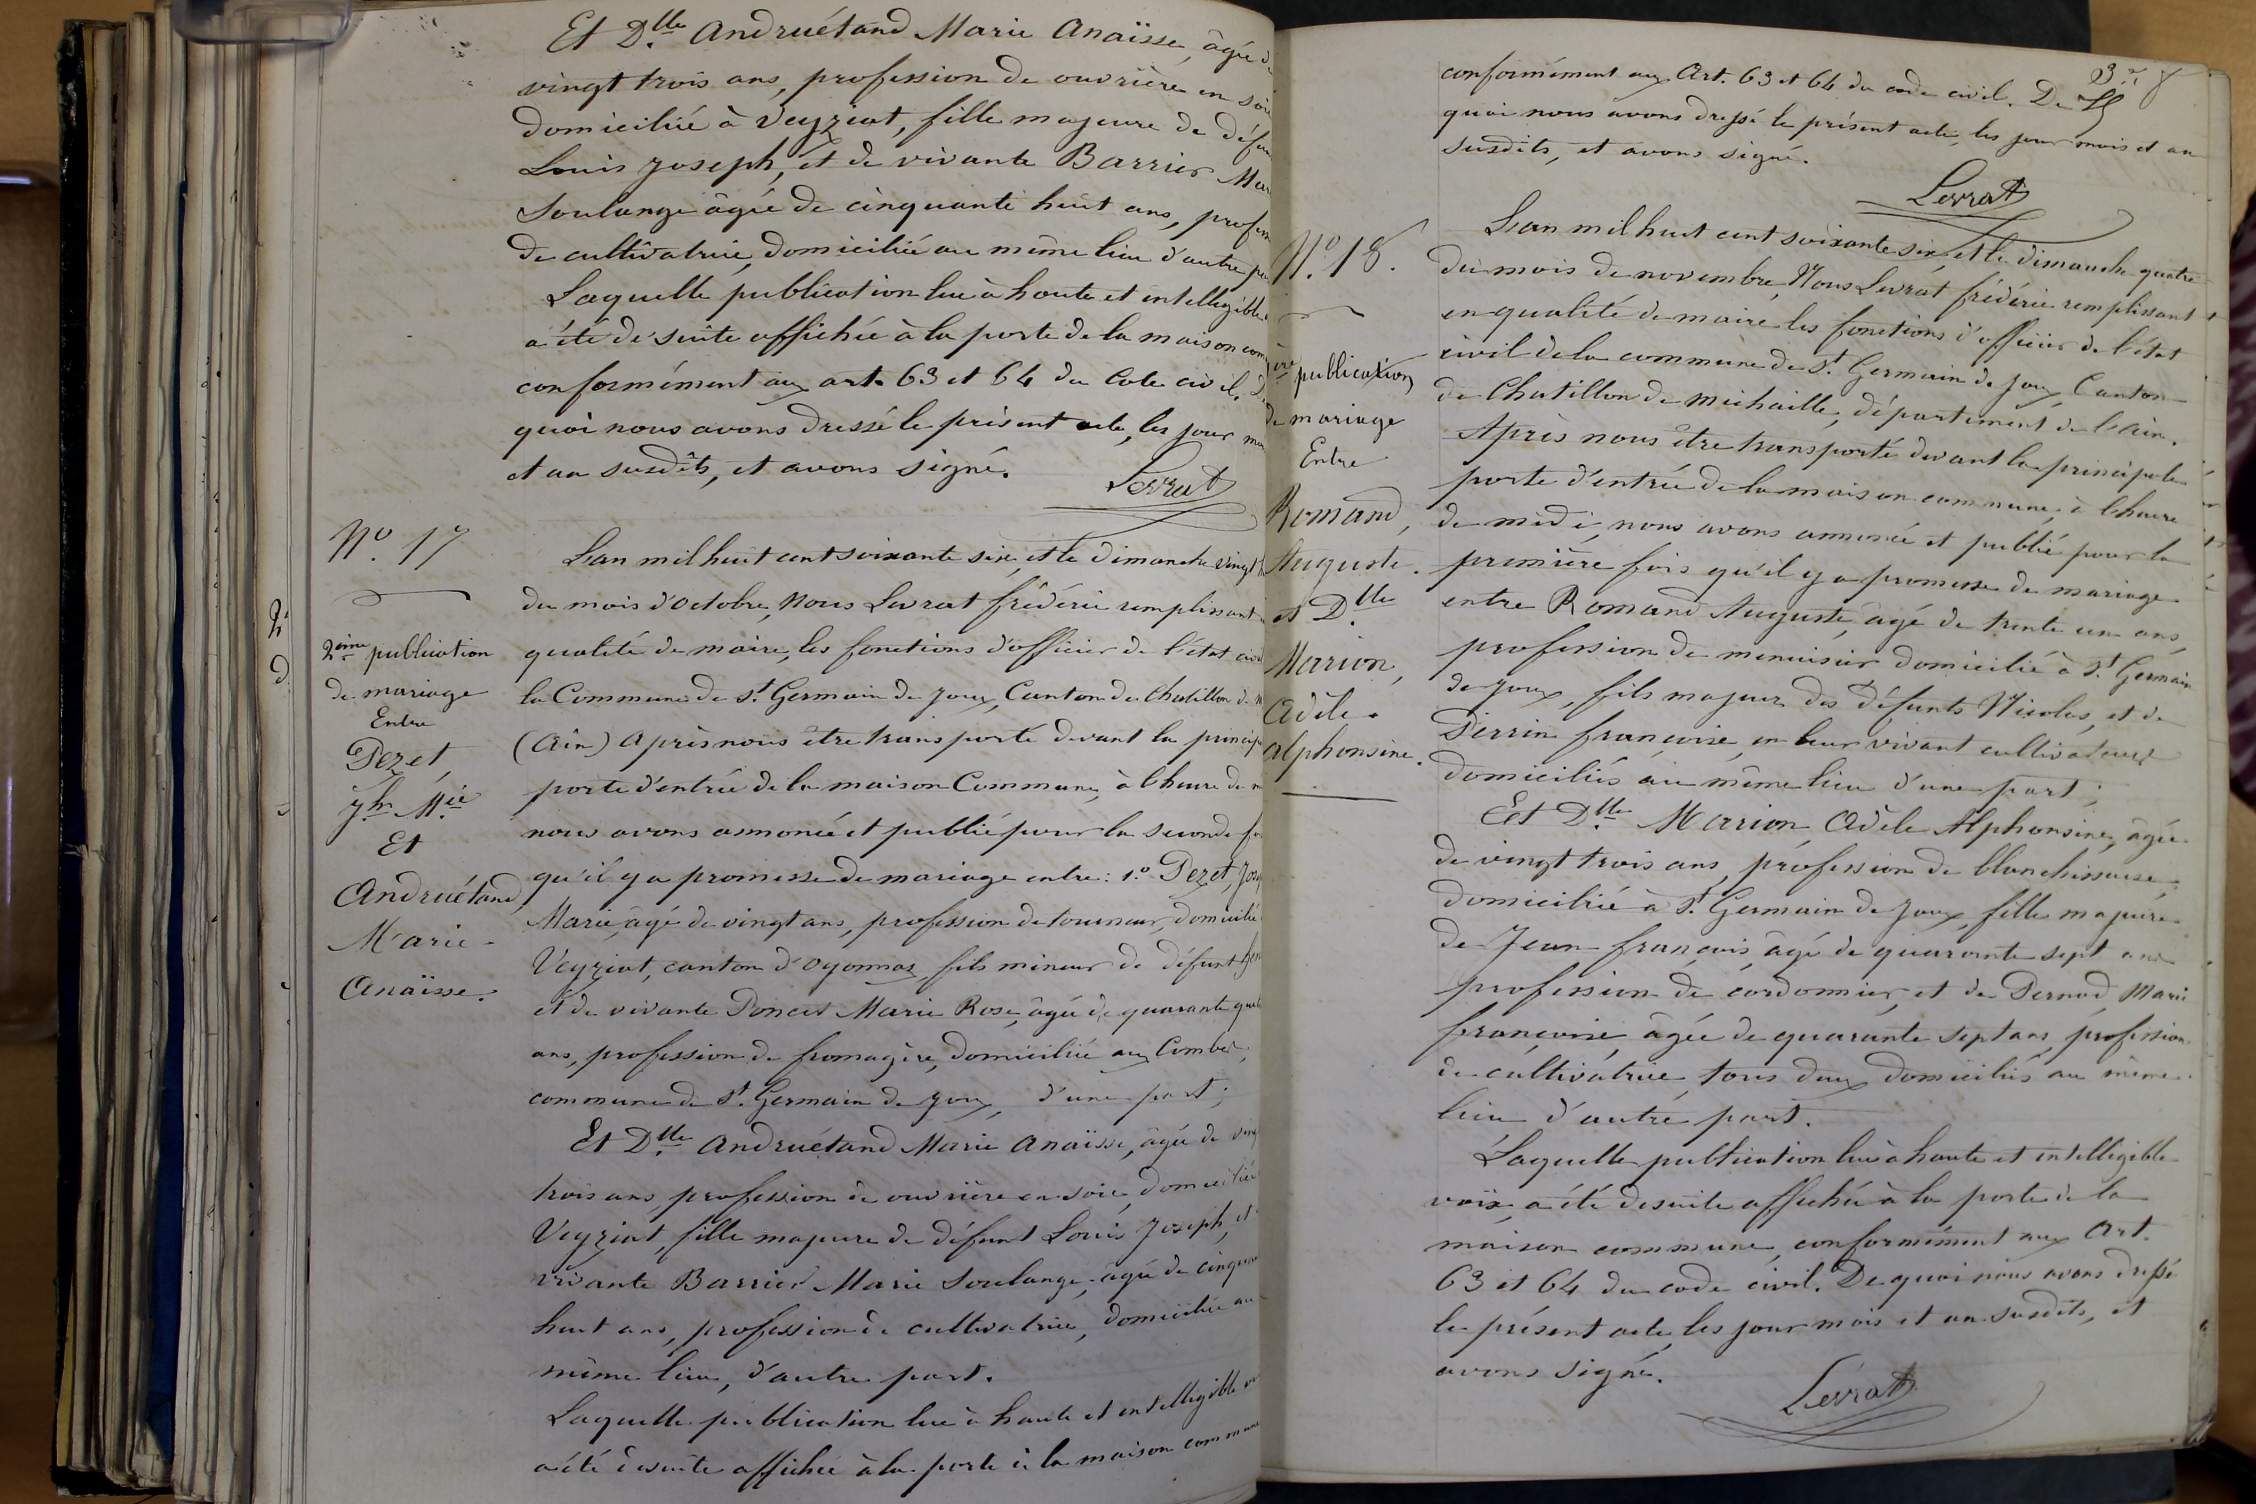 Et D.lle Andruétand Marie Anaïsse, âgée de
vingt trois ans, profession de ouvrière en soie
domiciliée à Veyziat, fille majeure de défunt
Louis Joseph, et de vivante Barrier Marie
Soulange âgée de cinquante huit ans, profession
de cultivatrice, domiciliée au même lieu d'autre part
Laquelle publication lue à haute et intelligible
a été de suite affichée à la porte de la maison com
conformément aux art. 63 et 64 du Code civil. De
quoi nous avons dressé le présent acte, les jour mois
et an susdits, et avons signé.
Levrat
N.o 17
2.ème publication
de mariage
Entre
Pezet
Jh M.ie
Et
Andruétand,
Marie
Anaïsse.
L'an mil huit cent soixante six, et le dimanche vingt h
du mois d'octobre, Nous Levrat frédéric remplissant
qualité de maire, les fonctions d'officier de l'état civil
la Commune de St. Germain de Joux, Canton de Chatillon de M
(Ain) Après nous être transporté devant la principale
porte d'entrée de la maison Commune, à l'heure de m
nous avons annoncé et publié pour la seconde fois
qu'il y a promesse de mariage entre: 1.o Pezet, Jos
Marie, âgé de vingt ans, profession de tourneur, domicilié
Veyziat, canton d'Oyonnax, fils mineur de défunt
et de vivante Poncet Marie Rose, âgée de quarante qua
ans, profession de fromagère, domiciliée aux Combes,
commune de St. Germain de Joux, d'une part;
Et D.lle Andruétand Marie Anaïsse, âgée de vingt
trois ans, profession de ouvrière en soie, domiciliée
Veyziat, fille majeure de défunt Louis Joseph, et
vivante Barrier Marie Soulange, âgée de cinquante
huit ans, profession de cultivatrice, domiciliée au
même lieu, d'autre part.
Laquelle publication lue à haute et intelligible voix
a été de suite affichée à la porte de la maison commune
conformément aux Art. 63 et 64 du code civil. De
quoi nous avons dressé le présent acte, les jour mois et an
susdits, et avons signé.
Levrat
N.o 18.
1ère publication
de mariage
Entre
Romand,
Auguste.
et D.lle
Marion,
Adèle
Alphonsine.
L'an mil huit cent soixante six, et le dimanche quatre
du mois de novembre, Nous Levrat frédéric remplissant
en qualité de maire les fonctions d'officier de l'état
civil de la commune de St. Germain de Joux, Canton
de Chatillon de Michaille, département de l'Ain.
Après nous être transporté devant la principale
porte d'entrée de la maison commune, à l'heure
de midi, nous avons annoncé et publié pour la
première fois qu'il y a promesse de mariage
entre Romand Auguste, âgé de trente un ans
profession de menuisier domicilié à St. Germain
de Joux, fils majeur des défunts Nicolas, et de
Perrin françoise, en leur vivant cultivateurs
domiciliés au même lieu d'une part;
Et D.lle Marion Adèle Alphonsine, âgée
de vingt trois ans, profession de blanchisseuse
domiciliée à St. Germain de Joux, fille majeure
de Jean françois, âgé de quarante sept ans
profession de cordonnier, et de Pernod, Marie
françoise, âgée de quarante sept ans, profession
de cultivatrice, tous deux domiciliés au même
lieu d'autre part.
Laquelle publication lue à haute et intelligible
voix, a été de suite affichée à la porte de la
maison commune, conformément aux Art.
63 et 64 du code civil. De quoi nous avons dressé
le présent acte, les jour mois et an susdits, et
avons signé.
Levrat